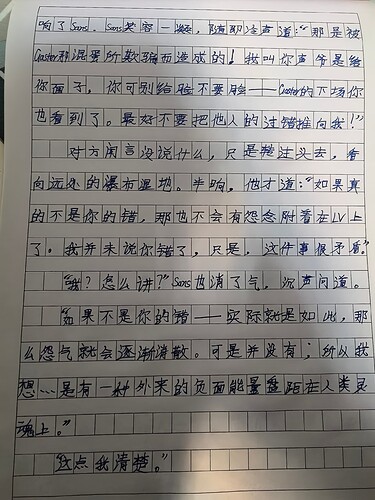 响了Sans。Sans笑容一凝，随即冷声道：“那是被
Gaster那混蛋所欺骗而造成的！我叫你声爷是给
你面子，你可别给脸不要脸——Gaster的下场你
也看到了。最好不要把他人的过错推向我！”
对方闻言没说什么，只是转过头去，看
向远处的瀑布湿地。半晌，他才道：“如果真
的不是你的错，那也不会有怨念附着在LV上
了。我并未说你错了，只是，这件事很矛盾。”
“我？怎么讲？”Sans也消了气，沉声问道。
“如果不是你的错——实际就是如此，那
么怨气就会逐渐消散。可是并没有；所以我
想…是有一种外来的负面能量盘踞在人类灵
魂上。”
“这点我清楚。”